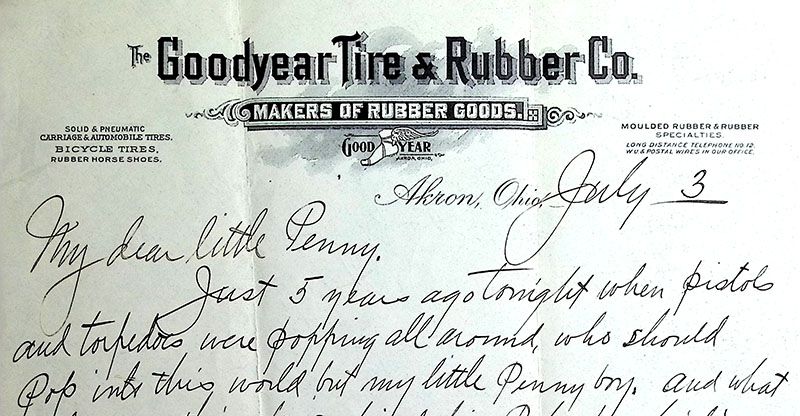 The Goodyear Tire & Rubber Co.
MAKERS OF RUBBER GOODS.
SOLID & PNEUMATIC
CARRIAGE & AUTOMOBILE TIRES.
BICYCLE TIRES,
RUBBER HORSE SHOES.
GOOD YEAR
AKRON, OHIO,
MOULDED RUBBER & RUBBER
SPECIALTIES.
LONG DISTANCE TELEPHONE NO. 12.
W.U. & POSTAL WIRES IN OUR OFFICE.
Akron, Ohio, July 3
My dear little Penny.
Just 5 years ago tonight when pistols
and torpedoes were popping all around, who should
Pop into this world but my little Penny boy. and what